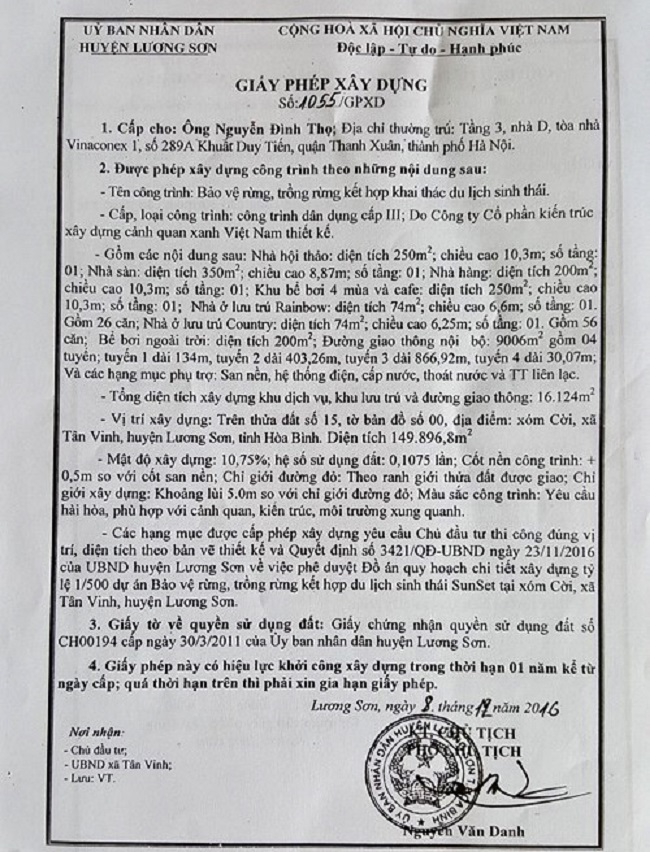 UỶ BAN NHÂN DÂN CỘNG HOÀ XÃ HỘI CHỦ NGHĨA VIỆT NAM
HUYỆN LƯƠNG SƠN Độc lập - Tự do - Hạnh phúc
GIẤY PHÉP XÂY DỰNG
Số: 1055/GPXD
1. Cấp cho: Ông Nguyễn Đình Thọ; Địa chỉ thường trú: Tầng 3, nhà D, tòa nhà
Vinaconex 1, số 289A Khuất Duy Tiến, quận Thanh Xuân, thành phố Hà Nội.
2. Được phép xây dựng công trình theo những nội dung sau:
- Tên công trình: Bảo vệ rừng, trồng rừng kết hợp khai thác du lịch sinh thái.
- Cấp, loại công trình: công trình dân dụng cấp III; Do Công ty Cổ phần kiến trúc
xây dựng cảnh quan xanh Việt Nam thiết kế.
- Gồm các nội dung sau: Nhà hội thảo: diện tích 250m²; chiều cao 10,3m; số tầng:
01; Nhà sàn: diện tích 350m²; chiều cao 8,87m; số tầng: 01; Nhà hàng: diện tích 200m²;
chiều cao 10,3m; số tầng: 01; Khu bể bơi 4 mùa và cafe: diện tích 250m²; chiều cao
10,3m; số tầng: 01; Nhà ở lưu trú Rainbow: diện tích 74m²; chiều cao 6,6m; số tầng: 01.
Gồm 26 căn; Nhà ở lưu trú Country: diện tích 74m²; chiều cao 6,25m; số tầng: 01. Gồm 56
căn; Bể bơi ngoài trời: diện tích 200m²; Đường giao thông nội bộ: 9006m² gồm 04
tuyến; tuyến 1 dài 134m, tuyến 2 dài 403,26m, tuyến 3 dài 866,92m, tuyến 4 dài 30,07m;
Và các hạng mục phụ trợ: San nền, hệ thống điện, cấp nước, thoát nước và TT liên lạc.
- Tổng diện tích xây dựng khu dịch vụ, khu lưu trú và đường giao thông: 16.124m²
- Vị trí xây dựng: Trên thửa đất số 15, tờ bản đồ số 00, địa điểm: xóm Cời, xã
Tân Vinh, huyện Lương Sơn, tỉnh Hòa Bình. Diện tích 149.896,8m²
- Mật độ xây dựng: 10,75%; hệ số sử dụng đất: 0,1075 lần; Cốt nền công trình: +
0,5m so với cốt san nền; Chỉ giới đường đỏ: Theo ranh giới thửa đất được giao; Chỉ
giới xây dựng: Khoảng lùi 5.0m so với chỉ giới đường đỏ; Màu sắc công trình: Yêu cầu
hài hòa, phù hợp với cảnh quan, kiến trúc, môi trường xung quanh.
- Các hạng mục được cấp phép xây dựng yêu cầu Chủ đầu tư thi công đúng vị
trí, diện tích theo bản vẽ thiết kế và Quyết định số 3421/QĐ-UBND ngày 23/11/2016
của UBND huyện Lương Sơn về việc phê duyệt Đồ án quy hoạch chi tiết xây dựng tỷ
lệ 1/500 dự án Bảo vệ rừng, trồng rừng kết hợp du lịch sinh thái SunSet tại xóm Cời, xã
Tân Vinh, huyện Lương Sơn.
3. Giấy tờ về quyền sử dụng đất: Giấy chứng nhận quyền sử dụng đất số
CH00194 cấp ngày 30/3/2011 của Ủy ban nhân dân huyện Lương Sơn.
4. Giấy phép này có hiệu lực khởi công xây dựng trong thời hạn 01 năm kể từ
ngày cấp; quá thời hạn trên thì phải xin gia hạn giấy phép.
Lương Sơn, ngày 8 tháng 12 năm 2016
Nơi nhận: KT. CHỦ TỊCH
- Chủ đầu tư; PHÓ CHỦ TỊCH
- UBND xã Tân Vinh;
- Lưu: VT.
Nguyễn Văn Danh